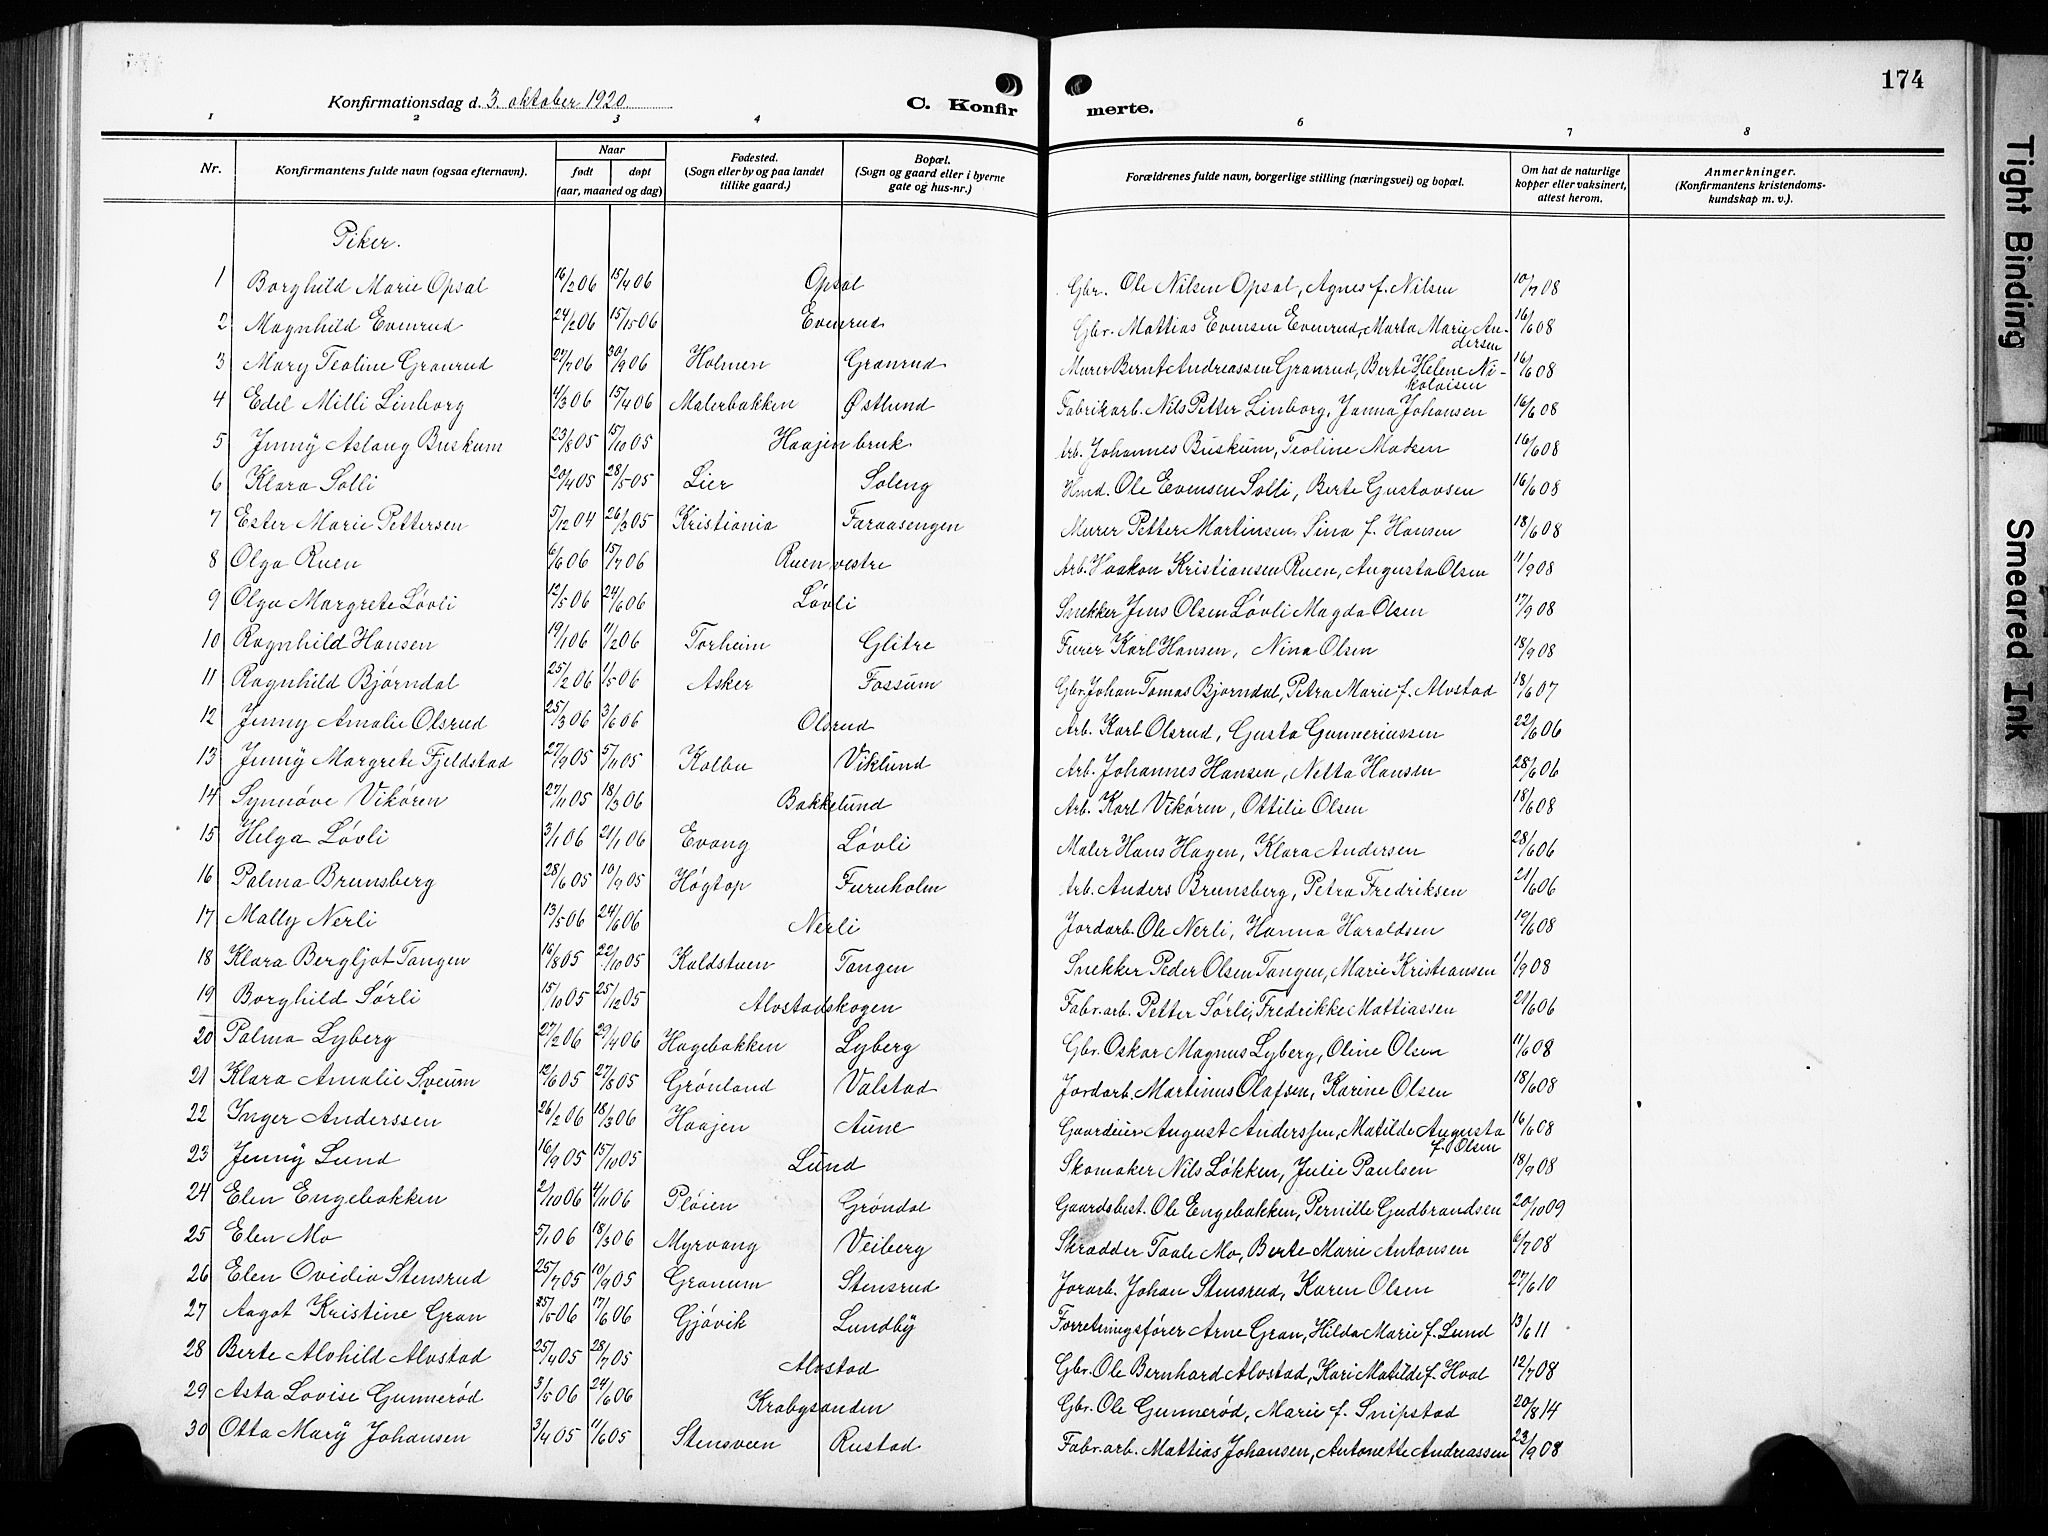 174
Konfirmationsdag d. 3. oktober 1920
C. Konfirmerte.
1 2 3 4 6 7 8
Nr. Konfirmantens fulde navn (ogsaa efternavn). Naar født døpt (aar, maaned og dag) Fødested. (Sogn eller by og paa landet tillike gaard.) Bopæl. (Sogn og gaard eller i byerne gate og hus-nr.) Forældrenes fulde navn, borgerlige stilling (næringsvei) og bopæl. Om hat de naturlige kopper eller vaksinert, attest herom. Anmerkninger. (Konfirmantens kristendomskundskap m. v.).
Piker.
1 Borghild Marie Opsal 16/2 06 15/4 06 Opsal Gbr. Ole Nilsen Opsal, Agnes f. Nilsen 10/7 08
2 Magnhild Evenrud 24/2 06 Evenrud Gbr. Mattias Evensen Evenrud, Marta Marie Andersen 16/6 08
3 Mary Teoline Granrud 27/7 06 30/9 06 Holmen Granrud Murer Bernt Andreassen Granrud, Berte Helene Nikolaisen 16/6 08
4 Edel Milli Linborg 4/3 06 15/4 06 Malerbakken Østlund Fabrikarb. Nils Petter Linborg, Janna Johansen 16/6 08
5 Jenny Aslaug Buskum 23/8 05 15/10 05 Haajen bruk Arb. Johannes Buskum, Teoline Madsen 16/6 08
6 Klara Solli 20/4 05 28/5 05 Lier Soleng Hmd. Ole Evensen Solli, Berte Gustavsen 16/6 08
7 Ester Marie Pettersen 5/12 04 26/3 05 Kristiania Faraasengen Murer Petter Martinsen, Sina f. Hansen 18/6 08
8 Olga Ruen 6/6 06 15/7 06 Ruen vestre Arb. Haakon Kristiansen Ruen, Augusta Olsen 11/9 08
9 Olga Margrete Løvli 12/5 06 24/6 06 Løvli Snekker Jens Olsen Løvli Magda Olsen 17/9 08
10 Ragnhild Hansen 19/1 06 11/2 06 Torheim Glitre Furer Karl Hansen, Nina Olsen 18/9 08
11 Ragnhild Bjørndal 25/2 06 1/5 06 Asker Fossum Gbr. Johan Tomas Bjørndal, Petra Marie f. Alvstad 18/6 07
12 Jenny Amalie Olsrud 25/3 06 3/6 06 Olsrud Arb. Karl Olsrud, Gusta Gunneriussen 22/6 06
13 Jenny Margrete Fjeldstad 27/9 05 5/11 05 Kolbu Viklund Arb. Johannes Hansen, Netta Hansen 28/6 06
14 Synnøve Vikøren 27/11 05 18/3 06 Bakkelund Arb. Karl Vikøren, Ottilie Olsen 18/6 08
15 Helga Løvli 3/1 06 21/1 06 Evang Løvli Maler Hans Hagen, Klara Andersen 28/6 06
16 Palma Brunsberg 28/6 05 10/9 05 Høgtop Furuholm Arb. Anders Brunsberg, Petra Fredriksen 21/6 06
17 Mally Nerli 13/5 06 24/6 06 Nerli Jordarb. Ole Nerli, Hanna Haraldsen 19/6 08
18 Klara Bergljot Tangen 16/8 05 22/10 05 Koldstuen Tangen Snekker Peder Olsen Tangen, Marie Kristiansen 1/9 08
19 Borghild Sørli 15/10 05 25/12 05 Alvstadskogen Fabr.arb. Petter Sørli, Fredrikke Mattiassen 21/6 06
20 Palma Lyberg 27/2 06 29/4 06 Hagebakken Lyberg Gbr. Oskar Magnus Lyberg, Oline Olsen 11/6 08
21 Klara Amalie Sveum 12/6 05 27/8 05 Grønland Valstad Jordarb. Martinus Olafsen, Karine Olsen 18/6 08
22 Inger Anderssen 26/2 06 18/3 06 Haajen Aune Gaardeier August Anderssen, Matilde Augusta f. Olsen 16/6 08
23 Jenny Lund 16/9 05 15/10 05 Lund Skomaker Nils Løkken, Julie Paulsen 18/9 08
24 Elen Engebakken 2/10 06 4/11 06 Pløien Grøndal Gaardsbest. Ole Engebakken, Pernille Gudbrandsen 20/10 09
25 Elen Mo 5/1 06 18/3 06 Myrvang Veiberg Skrædder Taale Mo, Berte Marie Antonsen 6/7 08
26 Elen Ovidia Stensrud 25/7 05 10/9 05 Granum Stensrud Jorarb. Johan Stensrud, Karen Olsen 27/6 10
27 Aagot Kristine Gran 25/5 06 17/6 06 Gjøvik Lundby Forretningsfører Arne Gran, Hilda Marie f. Lund 13/6 11
28 Berte Alvhild Alvstad 25/4 05 28/7 05 Alvstad Gbr. Ole Bernhard Alvstad, Kari Matilde f. Hval 12/7 08
29 Asta Lovise Gunnerød 3/5 06 24/6 06 Krabysanden Gbr. Ole Gunnerød, Marie f. Snipstad 20/8 14
30 Otta Mary Johansen 3/4 05 11/6 05 Stensveen Rustad Fabr.arb. Mattias Johansen, Antonette Andreassen 23/9 08
Tight Binding
Smeared Ink